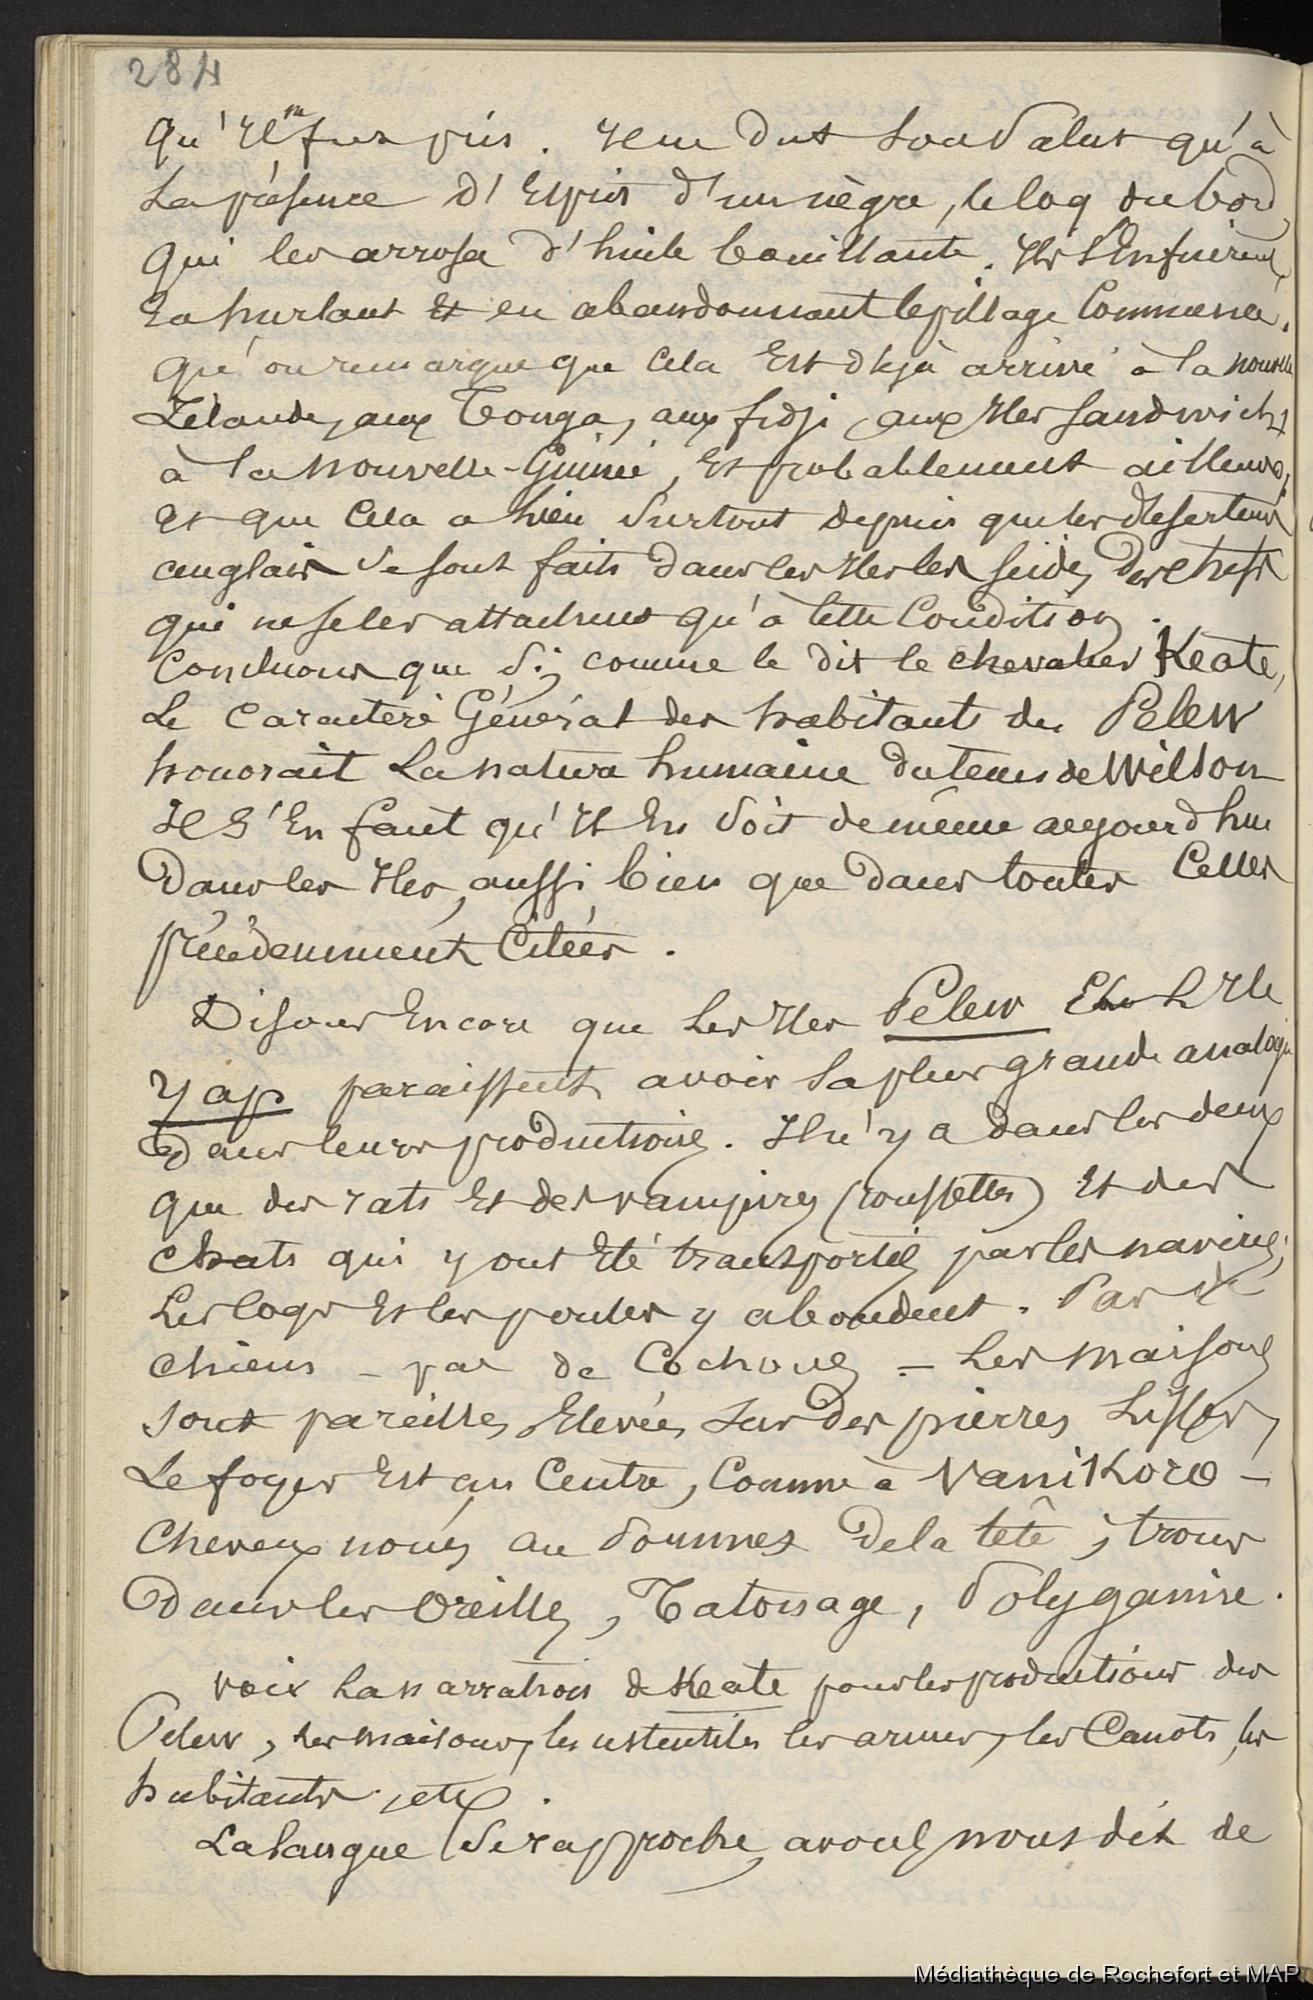 284
qu'il ne fut pris. Il ne dut son Salut qu'à
La présence d'Esprit d'un nègre, le coq du bord,
qui les arrosa d'huile bouillante. Ils S'Enfuirent
En hurlant Et en abandonnant le pillage Commencé.
Qu'on remarque que Cela Est déjà arrivé à la nouvelle
Zélande, aux Tonga, aux fidji, aux Iles Sandwich,
à la Nouvelle-Guinée, Et probablement ailleurs;
Et que Cela a lieu Surtout depuis que les déserteurs
anglais Se sont faits dans les Iles les Seides des chefs
qui ne se les attachent qu'à cette Condition.
Concluons que Si, comme le dit le chevalier Keate,
Le Caractère Général des habitants des Pelew
honorait La nature humaine du tems de Wilson
Il S'En faut qu'Il En Soit de même aujourd'hui
Dans les Iles, aussi bien que dans toutes Celles
précédemment Citées.
Disons Encore que Les Iles Pelew Et L'Ile
Yap paraissent avoir La plus grande analogie
Dans leurs productions. Il n'y a dans les deux
que des rats Et des vampires (roussettes) Et des
chats qui y ont Eté transportés par les navires;
Les coqs Et les poules y abondent. Pas de
chiens - pas de Cochons - Les Maisons
Sont pareilles, Elevées Sur des pierres Lisses,
Le foyer Est au Centre, Comme à Vanikoro -
Cheveux noués au Sommet De la tête ; trous
Dans les Oreilles, Tatouage, Polygamie.
Voir La narration de Keate pour les productions des
Pelew, Les maisons, les ustensiles les armes, les Canots, les
habitants, etc.
La langue Se rapproche, avons nous dit de
Médiathèque de Rochefort et MAP